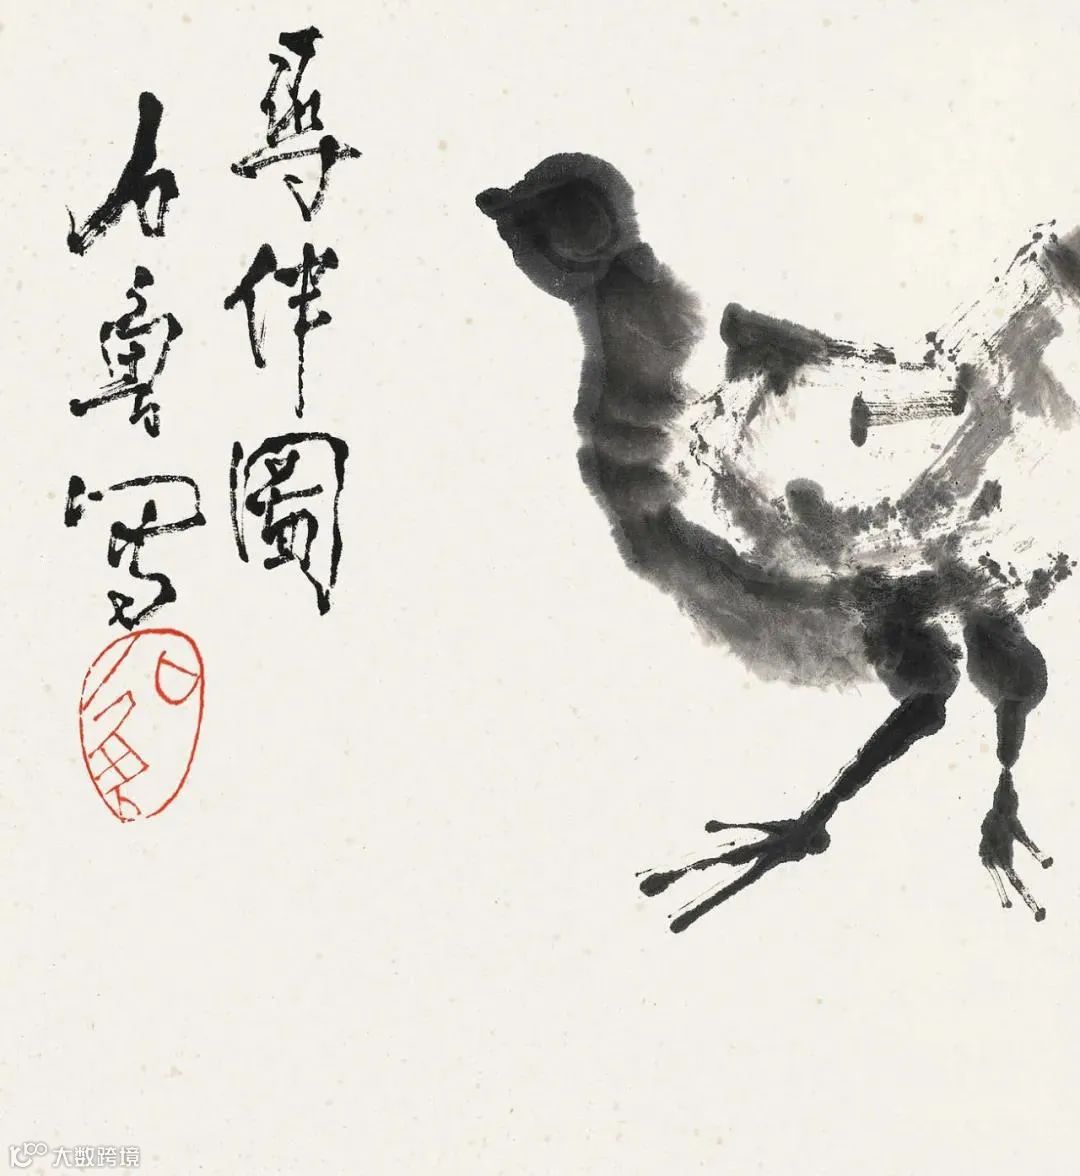 尋伴圖
石魯寫
石魯
大数跨境